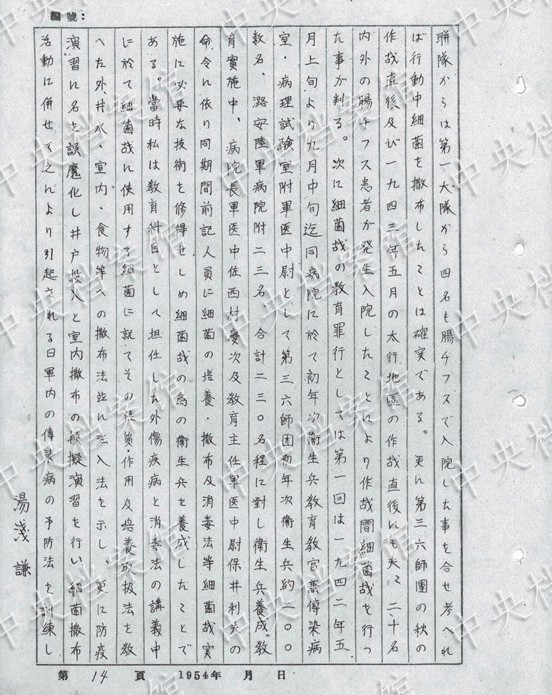 編號：
聯隊からは第一大隊から四名も腸チフスで入院した事を合せ考へれ
ば行動中細菌を撒布したことは確実である。更に第三六師團の秋の
作戦直後及び一九四三年五月の太行地區の作戦直後にも夫々二十名
内外の腸チフス患者が発生入院したことにより作戦間細菌戦を行っ
た事が判る。次に細菌戦の教育罪行としては第一回は一九四二年五
月上旬より九月中旬迄同病院に於て初年次衛生兵教育教官兼傳染病
室・病理試験室附軍医中尉として第三六師団初年次衛生兵約二〇〇
数名、潞安陸軍病院附二三名、合計二三〇名程に対し衛生兵養成教
育実施中、病院長軍医中佐西村慶次及教育主任軍医中尉保井利夫の
命令に依り同期間前記人員に細菌の培養・撒布及消毒法等細菌戦実
施に必要な技術を修得せしめ細菌戦の為の衛生兵を養成したことで
ある。當時私は教育科目として担任した外傷疾病と消毒法の講義中
に於て細菌戦に使用する細菌に就てその性質・作用及培養取扱法を教
へた外井水、室内、食物等への撒布法並に注入法を示し、更に防疫
演習に名を誤魔化し井戸投入と室内撒布の模擬演習を行い細菌撒布
活動に併せて之より引起される日軍内の傳染病の予防法を訓練し
湯淺謙
第 14 頁 1954年 月 日
中央档案馆